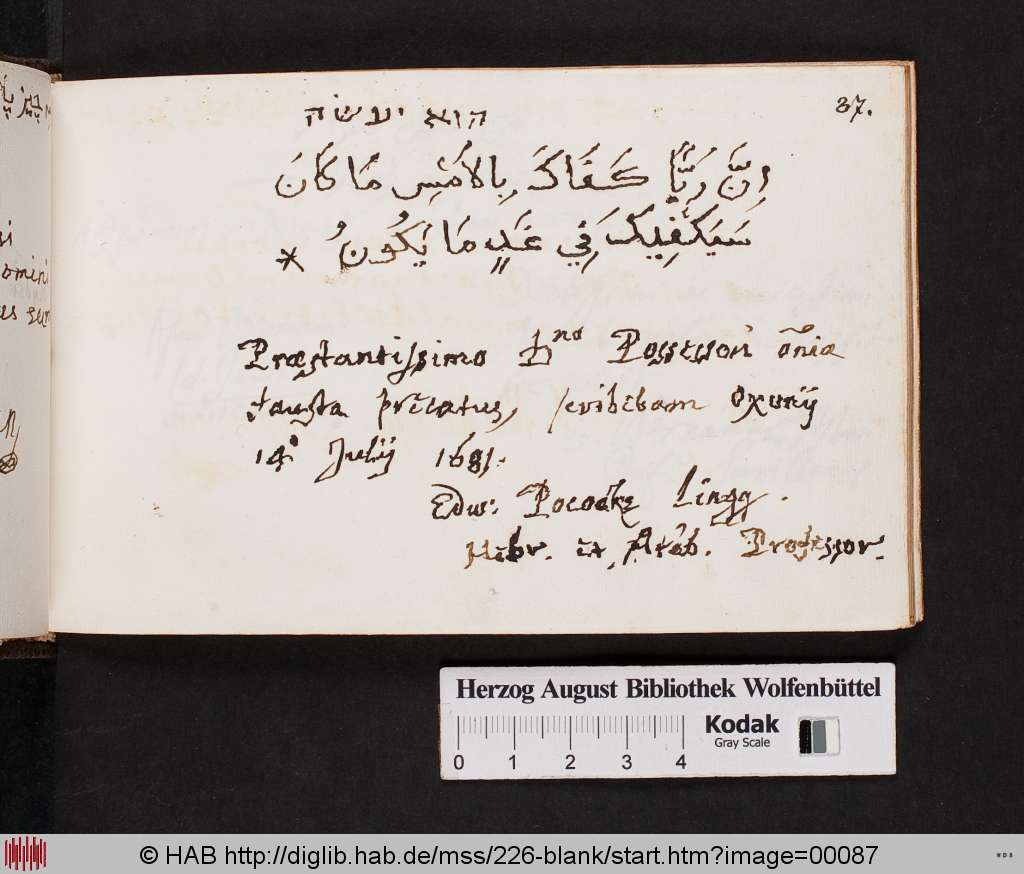 87.
הוא יעשה
اِنَّ رَبًّا كَفَاكَ بِالاَمْسِ مَا كَانَ
سَيَكْفِيكَ فِي غَدٍ مَا يَكُونُ *
Præstantissimo Dno Possessori oĩa
fausta precatus, scribebam Oxonij
14º Julij 1681.
Edw: Pococke Lingg.
Hebr. et Arab. Professor.
si
omini
Herzog August Bibliothek Wolfenbüttel
Kodak
Gray Scale
0 1 2 3 4
© HAB http://diglib.hab.de/mss/226-blank/start.htm?image=00087